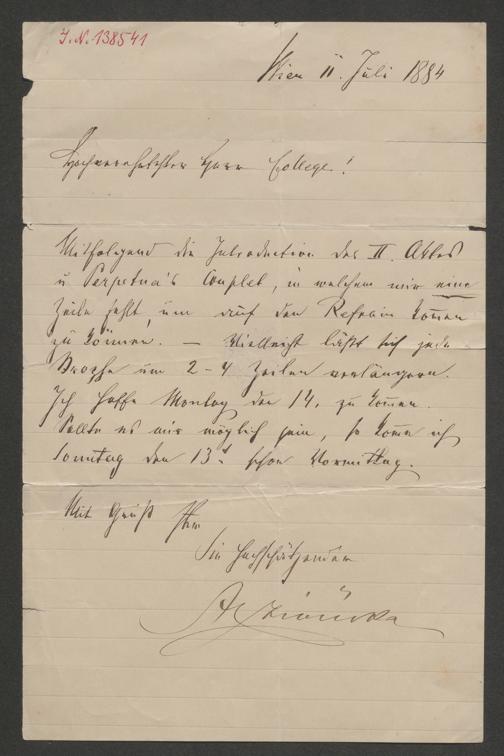 J. N. 138541
Wien 11. Juli 1884
Hochverehrtester Herr College!
Mitfolgend die Introduction des II. Aktes
u Perpetua's Couplet, in welchem mir eine
Zeile fehlt, um auf den Refrain komen
zu könen. — Vielleicht läßt sich jede
Strophe um 2-4 Zeilen verlängern.
Ich hoffe Montag den 14. zu komen.
Sollte es mir möglich sein, so kome ich
Sonntag den 13t schon Vormittag.
Mit Gruß Ihr
Sie hochschätzender